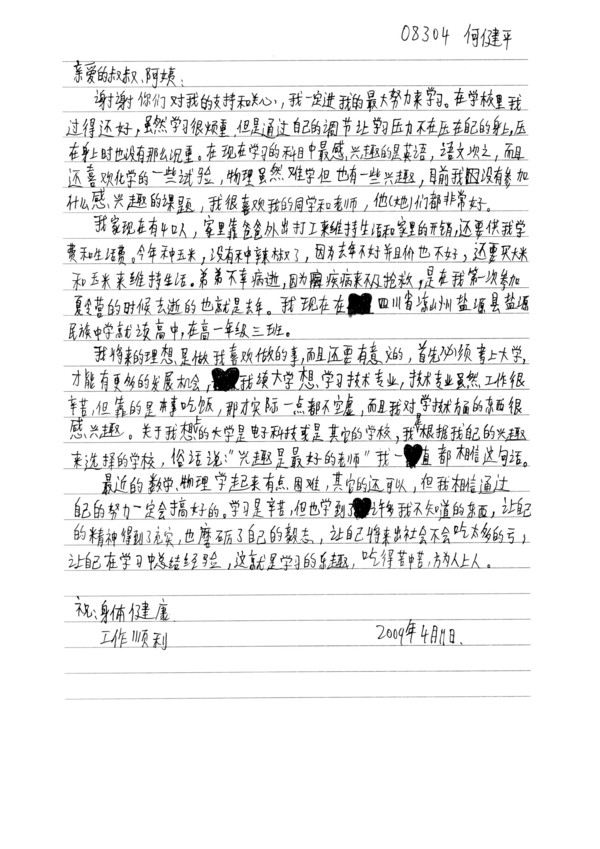 08304 何健平
亲爱的叔叔、阿姨、
谢谢你们对我的支持和关心，我一定进我的最大努力来学习。在学校里我
过得还好，虽然学习很烦重，但是通过自己的调节让学习压力不在压在自己的身上，压
在身上时也没有那么沉重。在现在学习的科目中最感兴趣的是英语，语文次之，而且
还喜欢化学的一些试验，物理虽然难学但也有一些兴趣，目前我因没有参加
什么感兴趣的课题，我很喜欢我的同学和老师，他(她)们都非常好。
我家现在有4口人，家里靠爸爸外出打工来维持生活和家里的开销，还要供我学
费和生活费。今年种玉米，没有种辣椒了，因为去年不好并且价也不好，还要买大米
和玉米来维持生活。弟弟不幸病逝，因为疾病来不及抢救，是在我第一次参加
夏令营的时候去逝的也就是去年。我现在在四川省凉山州盐源县盐源
民族中学就读高中，在高一年级三班。
我将来的理想是做我喜欢做的事，而且还要有意义的，首先必须考上大学，
才能有更多的发展机会，我读大学想学习技术专业，技术专业虽然工作很
辛苦，但靠的是本事吃饭，那才实际一点都不空虚，而且我对学技术方面的东西很
感兴趣。关于我想上的大学是电子科技或是其它的学校，我根据我自己的兴趣
来选择的学校，俗话说："兴趣是最好的老师"我一直都相信这句话。
最近的数学、物理学起来有点困难，其它的还可以，但我相信通过
自己的努力一定会搞好的。学习是辛苦，但也学到了许多我不知道的东西，让自己
的精神得到了充实，也磨砺了自己的毅志，让自己将来出社会不会吃太多的亏，
让自己在学习中总结经验，这就是学习的乐趣，吃得苦中苦，方为人上人。
祝：身体健康
工作顺利 2009年4月11日.